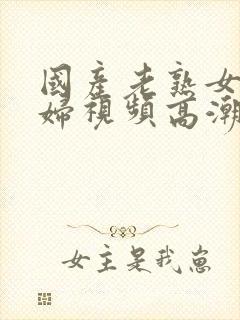 國產老熟女
婦視頻高潮
女主是我崽